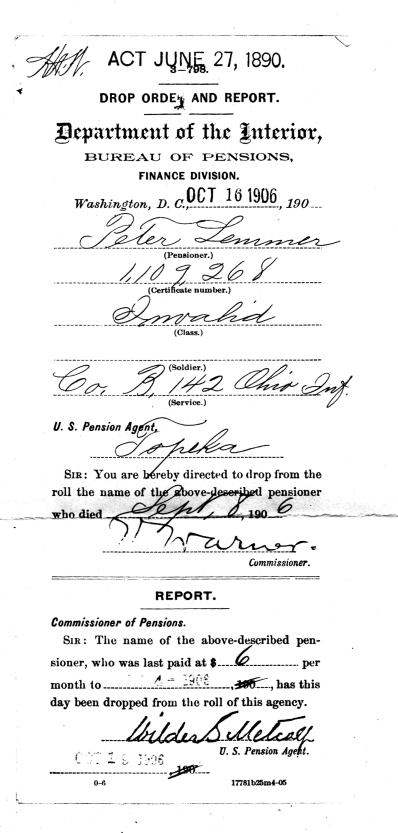 H.H.W. ACT JUNE 27, 1890.
3—798.
DROP ORDER AND REPORT.
Department of the Interior,
BUREAU OF PENSIONS,
FINANCE DIVISION.
Washington, D. C., OCT 16 1906, 190
Peter Lemmer
(Pensioner.)
1,109,268
(Certificate number.)
Invalid
(Class.)
(Soldier.)
Co. B, 142 Ohio Inf.
(Service.)
U. S. Pension Agent,
Topeka
SIR: You are hereby directed to drop from the
roll the name of the above-described pensioner
who died Sept, 8, 1906
Warner.
Commissioner.
REPORT.
Commissioner of Pensions.
SIR: The name of the above-described pen-
sioner, who was last paid at $ 6 per
month to 4 - 1906 190, has this
day been dropped from the roll of this agency.
Wilder S. Metcalf
U. S. Pension Agent.
OCT 19 1906
190
0-6 17781b25m4-05